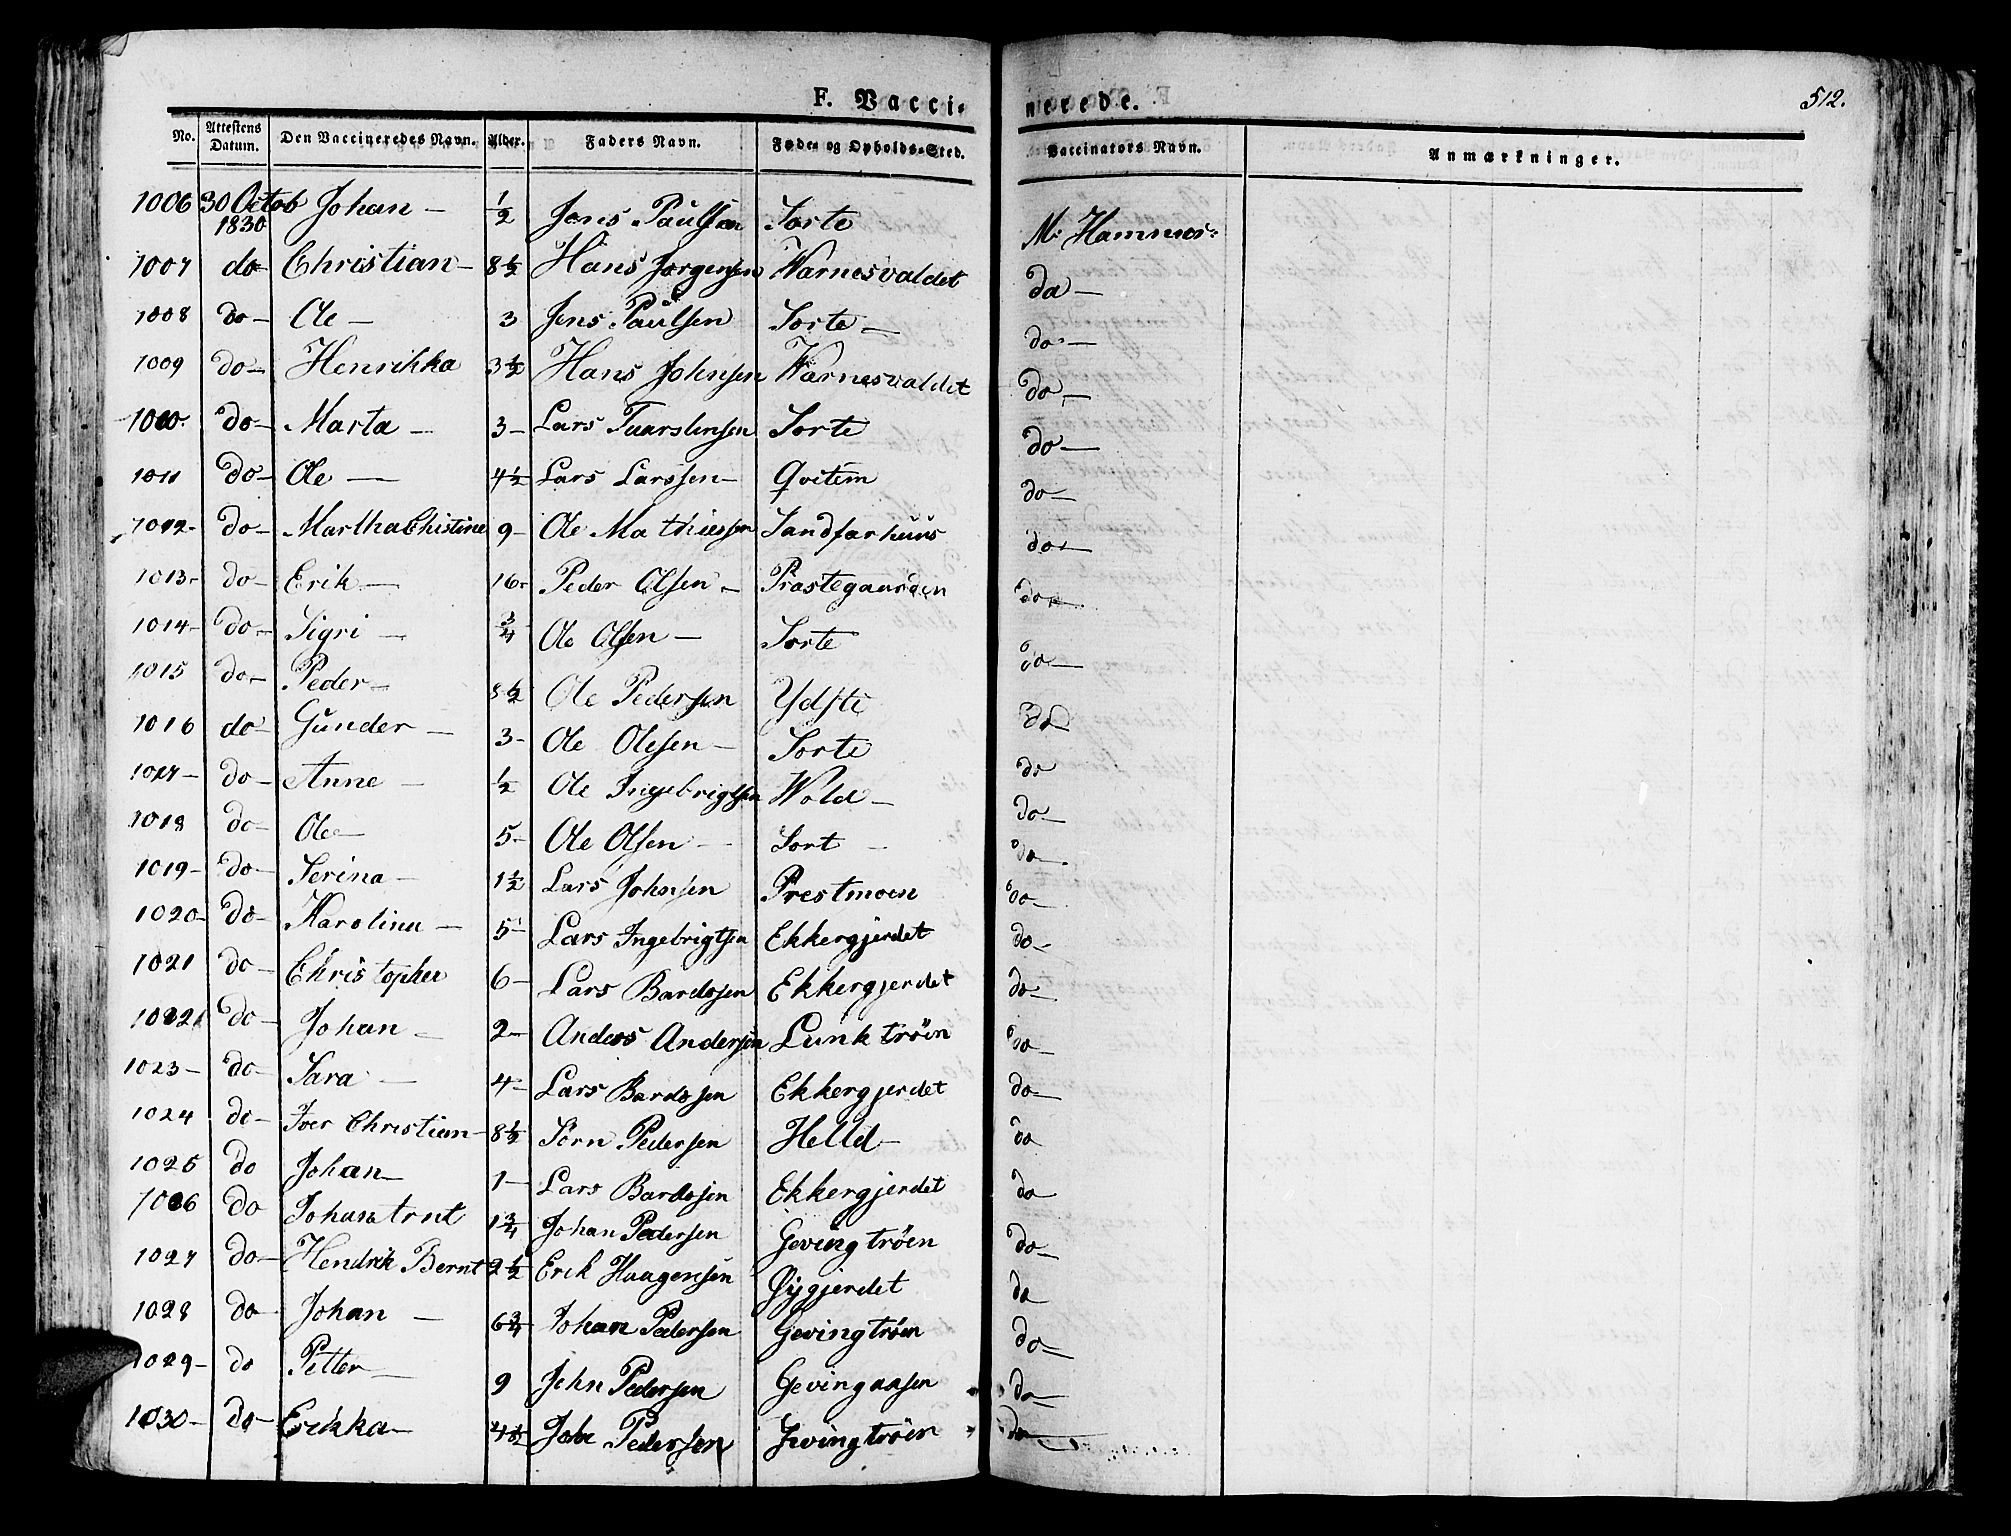 F. Vacci-
nerede.
512.
No. Attestens Datum. Den Vaccineredes Navn. Alder. Faders Navn. Føde- og Opholds-Sted. Vaccinators Navn. Anmærkninger.
1006 30 Octob 1830 Johan — ½ Jens Paulsen Sorte M. Hammer
1007 do Christian — 8½ Hans Jørgensen Warnesvaldet do —
1008 do — Ole — 3 Jens Paulsen Sorte — do —
1009 do — Henrikka 3½ Hans Johnsen Warnesvaldet do —
1010 do — Marta — 3 — Lars Taarstensen Sorte do —
1011 do — Ole — 4½ Lars Larssen — Qvitem do —
1012 — do — Martha Christine 9 — Ole Mathiessen Sandfærhuus do —
1013 — do — Erik — 16 — Peder Olsen — Prastegaarden do —
1014 — do — Sigri — ¾ Ole Olsen — Sorte do —
1015 do — Peder — 8½ Ole Pedersen Ydsti do
1016 do — Gunder — 3 — Ole Olesen — Sorte do
1017 — do — Anne — ½ Ole Ingebrigtsen Wold — do —
1018 do — Ole — 5 — Ole Olsen — Sort — do —
1019 — do — Serina — 1½ Lars Johnsen Prestmoen do —
1020 — do — Karolina — 5 — Lars Ingebrigtsen Ekkergjerdet do —
1021 do — Christopher 6 — Lars Bardosen Ekkergjerdet do —
1022 do — Johan — 2 — Anders Andersen Lunktrøin do —
1023 — do — Sara — 4 — Lars Bardosen Ekkergjerdet do —
1024 do — Iver Christian — 8½ Sørn Pedersen Helld — do
1025 do Johan — 1 — Lars Bardosen Ekkergjerdet do
1026 do Johan Arnt 1¾ Johan Pedersen Gevingtrøen do —
1027 do — Hendrik Bernt 2½ Erik Haagensen Øygjerdet do
1028 do — Johan — 6¾ Johan Pedersen Gevingtrøen do —
1029 — do Petter — 9 John Pedersen Gevingaasen do —
1030 — do — Erikka — 4½ John Pedersen Gevingtrøen do —